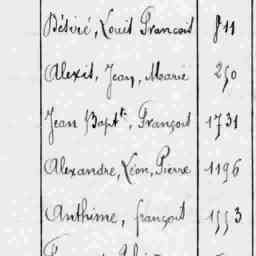 Désiré, Louis François 811
Alexis, Jean, Marie 250
Jean Bapt^te, François 1731
Alexandre, Léon, Pierre 1196
Anthime, françois 1553